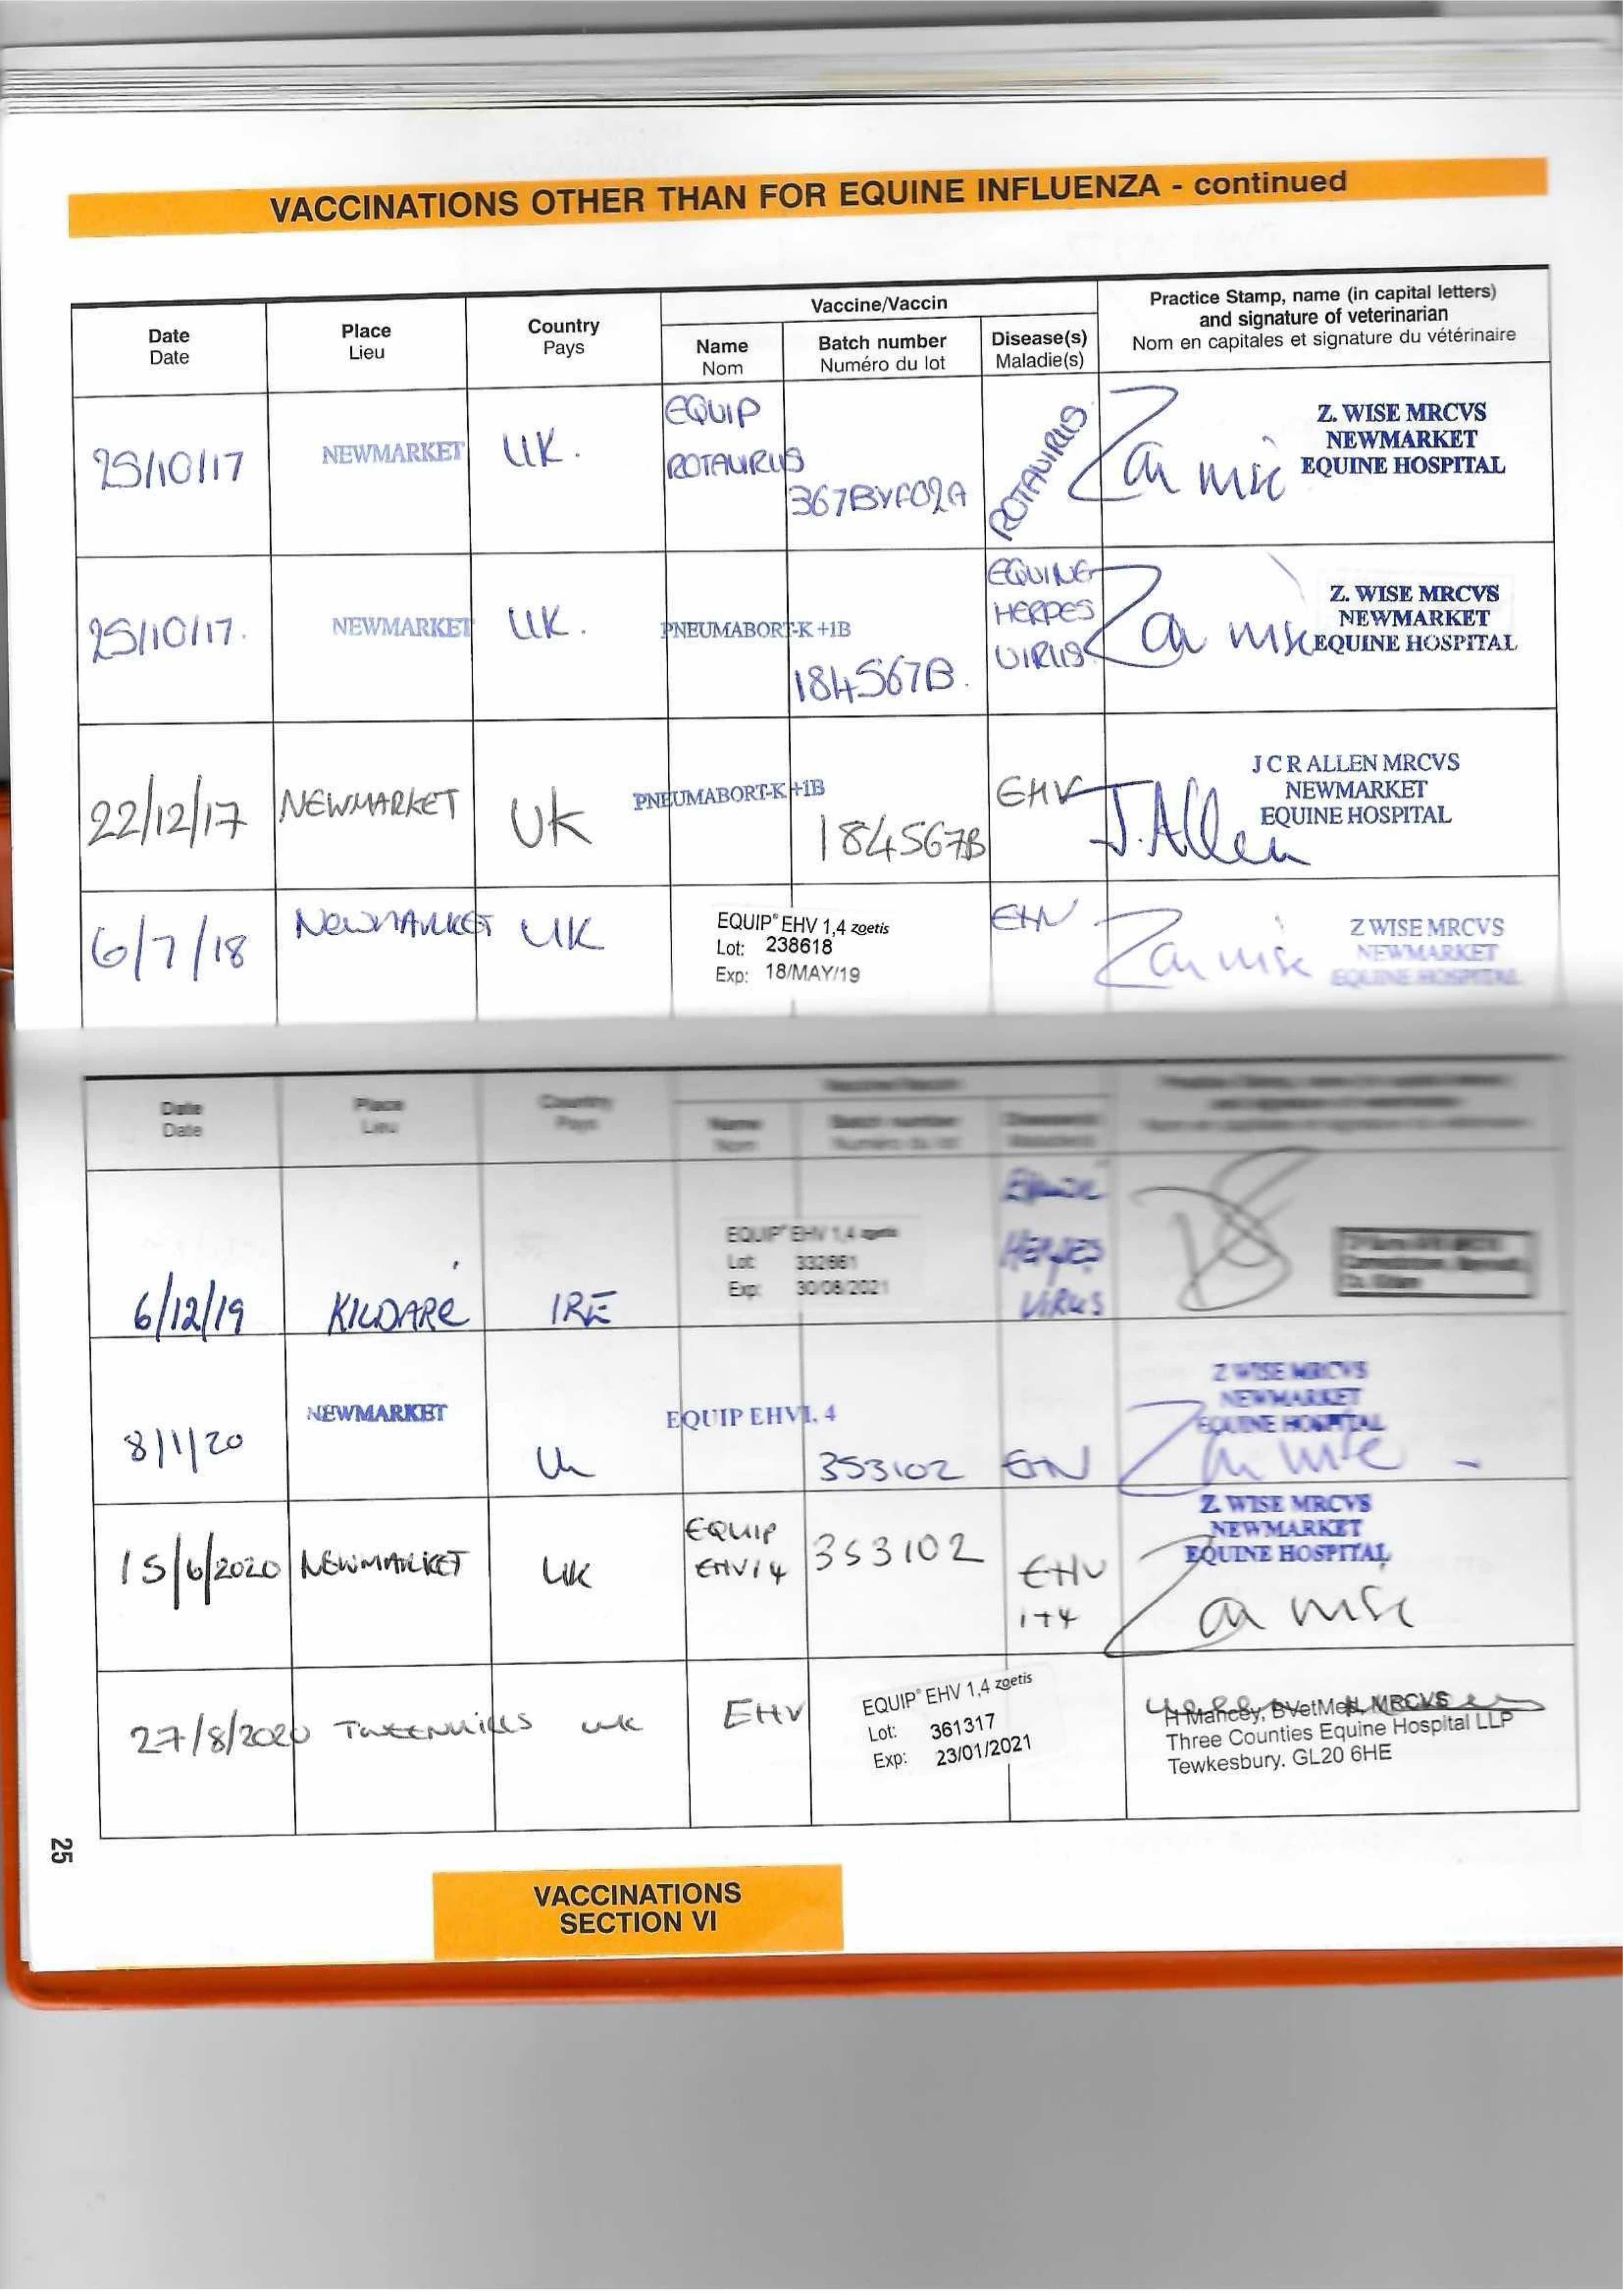 VACCINATIONS OTHER THAN FOR EQUINE INFLUENZA - continued
Date
Date
Place
Lieu
Country
Pays
Vaccine/Vaccin
Name
Nom
Batch number
Numéro du lot
Disease(s)
Maladie(s)
Practice Stamp, name (in capital letters)
and signature of veterinarian
Nom en capitales et signature du vétérinaire
25/10/17
NEWMARKET
UK.
EQUIP
ROTAVIRUS
367BYF02A
ROTAVIRUS
Z. WISE MRCVS
NEWMARKET
EQUINE HOSPITAL
25/10/17.
NEWMARKET
UK.
PNEUMABORT-K +1B
184567B.
EQUINE
HERPES
VIRUS
Z. WISE MRCVS
NEWMARKET
EQUINE HOSPITAL
22/12/17
NEWMARKET
UK
PNEUMABORT-K +1B
184567B
EHV
J.Allen
J C R ALLEN MRCVS
NEWMARKET
EQUINE HOSPITAL
6/7/18
NEWMARKET
UK
EQUIP® EHV 1,4 zoetis
Lot: 238618
Exp: 18/MAY/19
EHV
Z WISE MRCVS
NEWMARKET
EQUINE HOSPITAL
Date
Date
Place
Lieu
Country
Pays
Name
Nom
Batch number
Numéro du lot
6/12/19
KILDARE
IRE
EQUIP® EHV 1,4 zoetis
Lot: 332661
Exp: 30/08/2021
Equine
HERPES
VIRUS
8/1/20
NEWMARKET
UK
EQUIP EHV1. 4
353102
EHV
Z WISE MRCVS
NEWMARKET
EQUINE HOSPITAL
15/6/2020
NEWMARKET
UK
EQUIP
EHV14
353102
EHV
1+4
Z. WISE MRCVS
NEWMARKET
EQUINE HOSPITAL
27/8/2020
TWEENHILLS
UK
EHV
EQUIP® EHV 1,4 zoetis
Lot: 361317
Exp: 23/01/2021
H Mancey, BVetMed, MRCVS
Three Counties Equine Hospital LLP
Tewkesbury. GL20 6HE
25
VACCINATIONS
SECTION VI